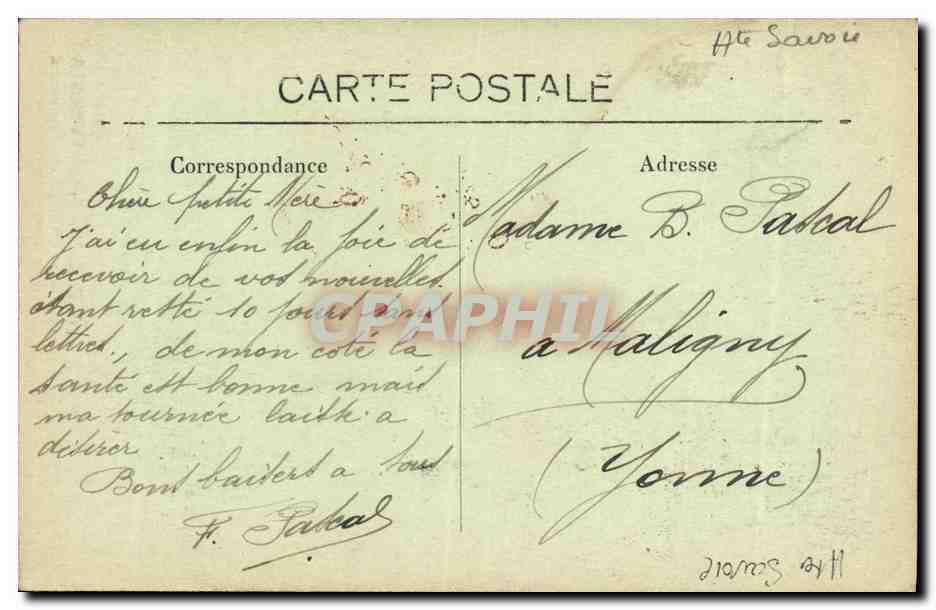 Hte Savoie
CARTE POSTALE
Correspondance
Chère petite Mère
J'ai eu enfin la joie de
recevoir de vos nouvelles.
étant resté 10 jours sans
lettres., de mon coté la
santé est bonne mais
ma tournée laisse a
désirer
Bons baisers a tous
F. Pascal
Adresse
Madame B. Pascal
a Maligny
(Yonne)
Hte Savoie
CPAPHIL